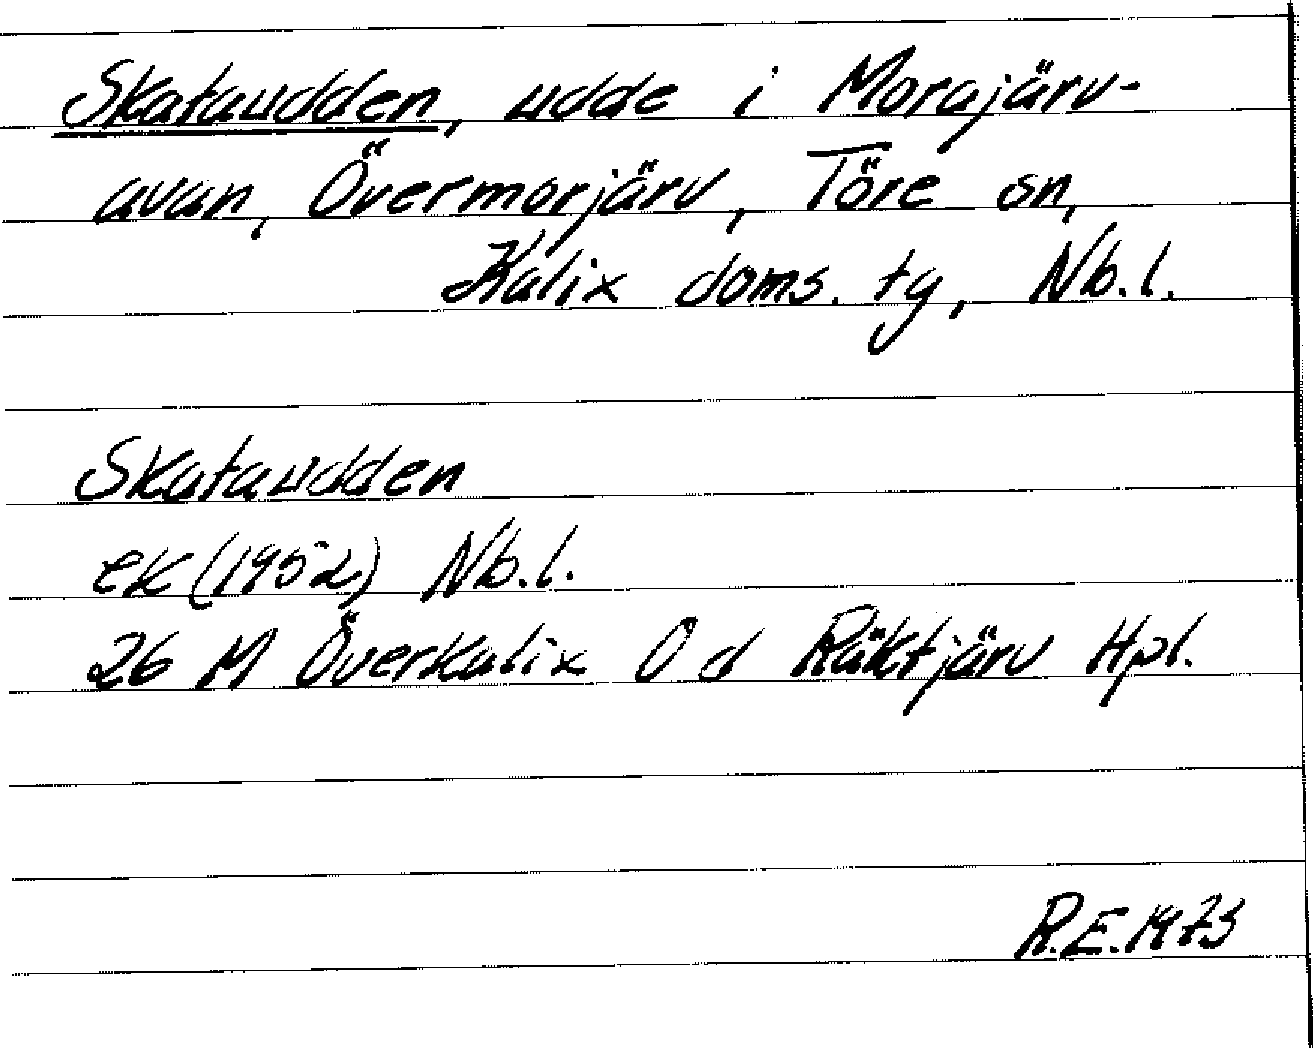 Skataudden, udde i Morajärv-
avan, Övermorjärv, Töre sn,
Kalix doms. tg, Nb.l.
Skataudden
ek (1952) Nb.l.
26 M Överkalix 0 d Räktjärv Hpl.
R.E. 1973